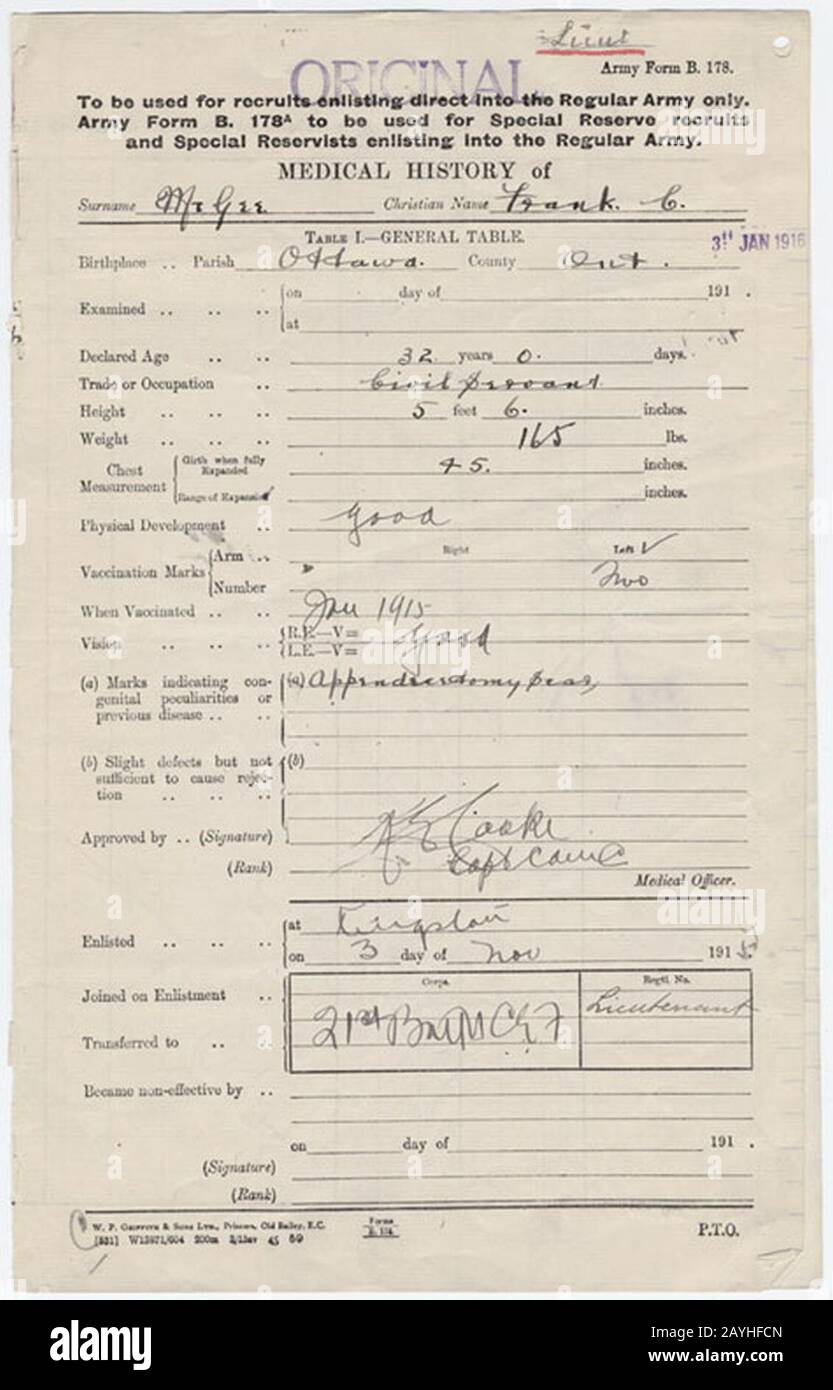 Lieut
Army Form B. 178.
ORIGINAL
To be used for recruits enlisting direct into the Regular Army only.
Army Form B. 178A to be used for Special Reserve recruits
and Special Reservists enlisting into the Regular Army.
MEDICAL HISTORY of
Surname McGee Christian Name Frank. C.
TABLE I.—GENERAL TABLE.
31 JAN 1916
Birthplace .. Parish Ottawa. County Ont.
Examined .. .. .. on day of 191 .
at
Declared Age .. .. 32 years 0. days.
Trade or Occupation .. Civil Servant
Height .. .. .. 5 feet 6. inches.
Weight .. .. .. 165 lbs.
Chest Measurement Girth when fully Expanded 45. inches.
Range of Expansion inches.
Physical Development .. good
Vaccination Marks Arm .. Right Left √
Number Two
When Vaccinated .. .. Jan 1915
Vision .. .. .. R.E.—V= good
L.E.—V=
(a) Marks indicating con- (a) Appendicectomy Scar,
genital peculiarities or
previous disease .. ..
(b) Slight defects but not (b)
sufficient to cause rejec-
tion .. .. ..
Approved by .. (Signature) Cooke
(Rank) Capt CAMC
Medical Officer.
Enlisted .. .. .. at Kingston
on 3 day of Nov 1915.
Corps. Regtl. No.
Joined on Enlistment .. 21st Battn CEF Lieutenant
Transferred to ..
Became non-effective by ..
on day of 191 .
(Signature)
(Rank)
W. P. GRIFFITH & SONS LTD., Printers, Old Bailey, E.C. Forms
P.T.O.
alamy
Image ID: 2AYHFCN
www.alamy.com